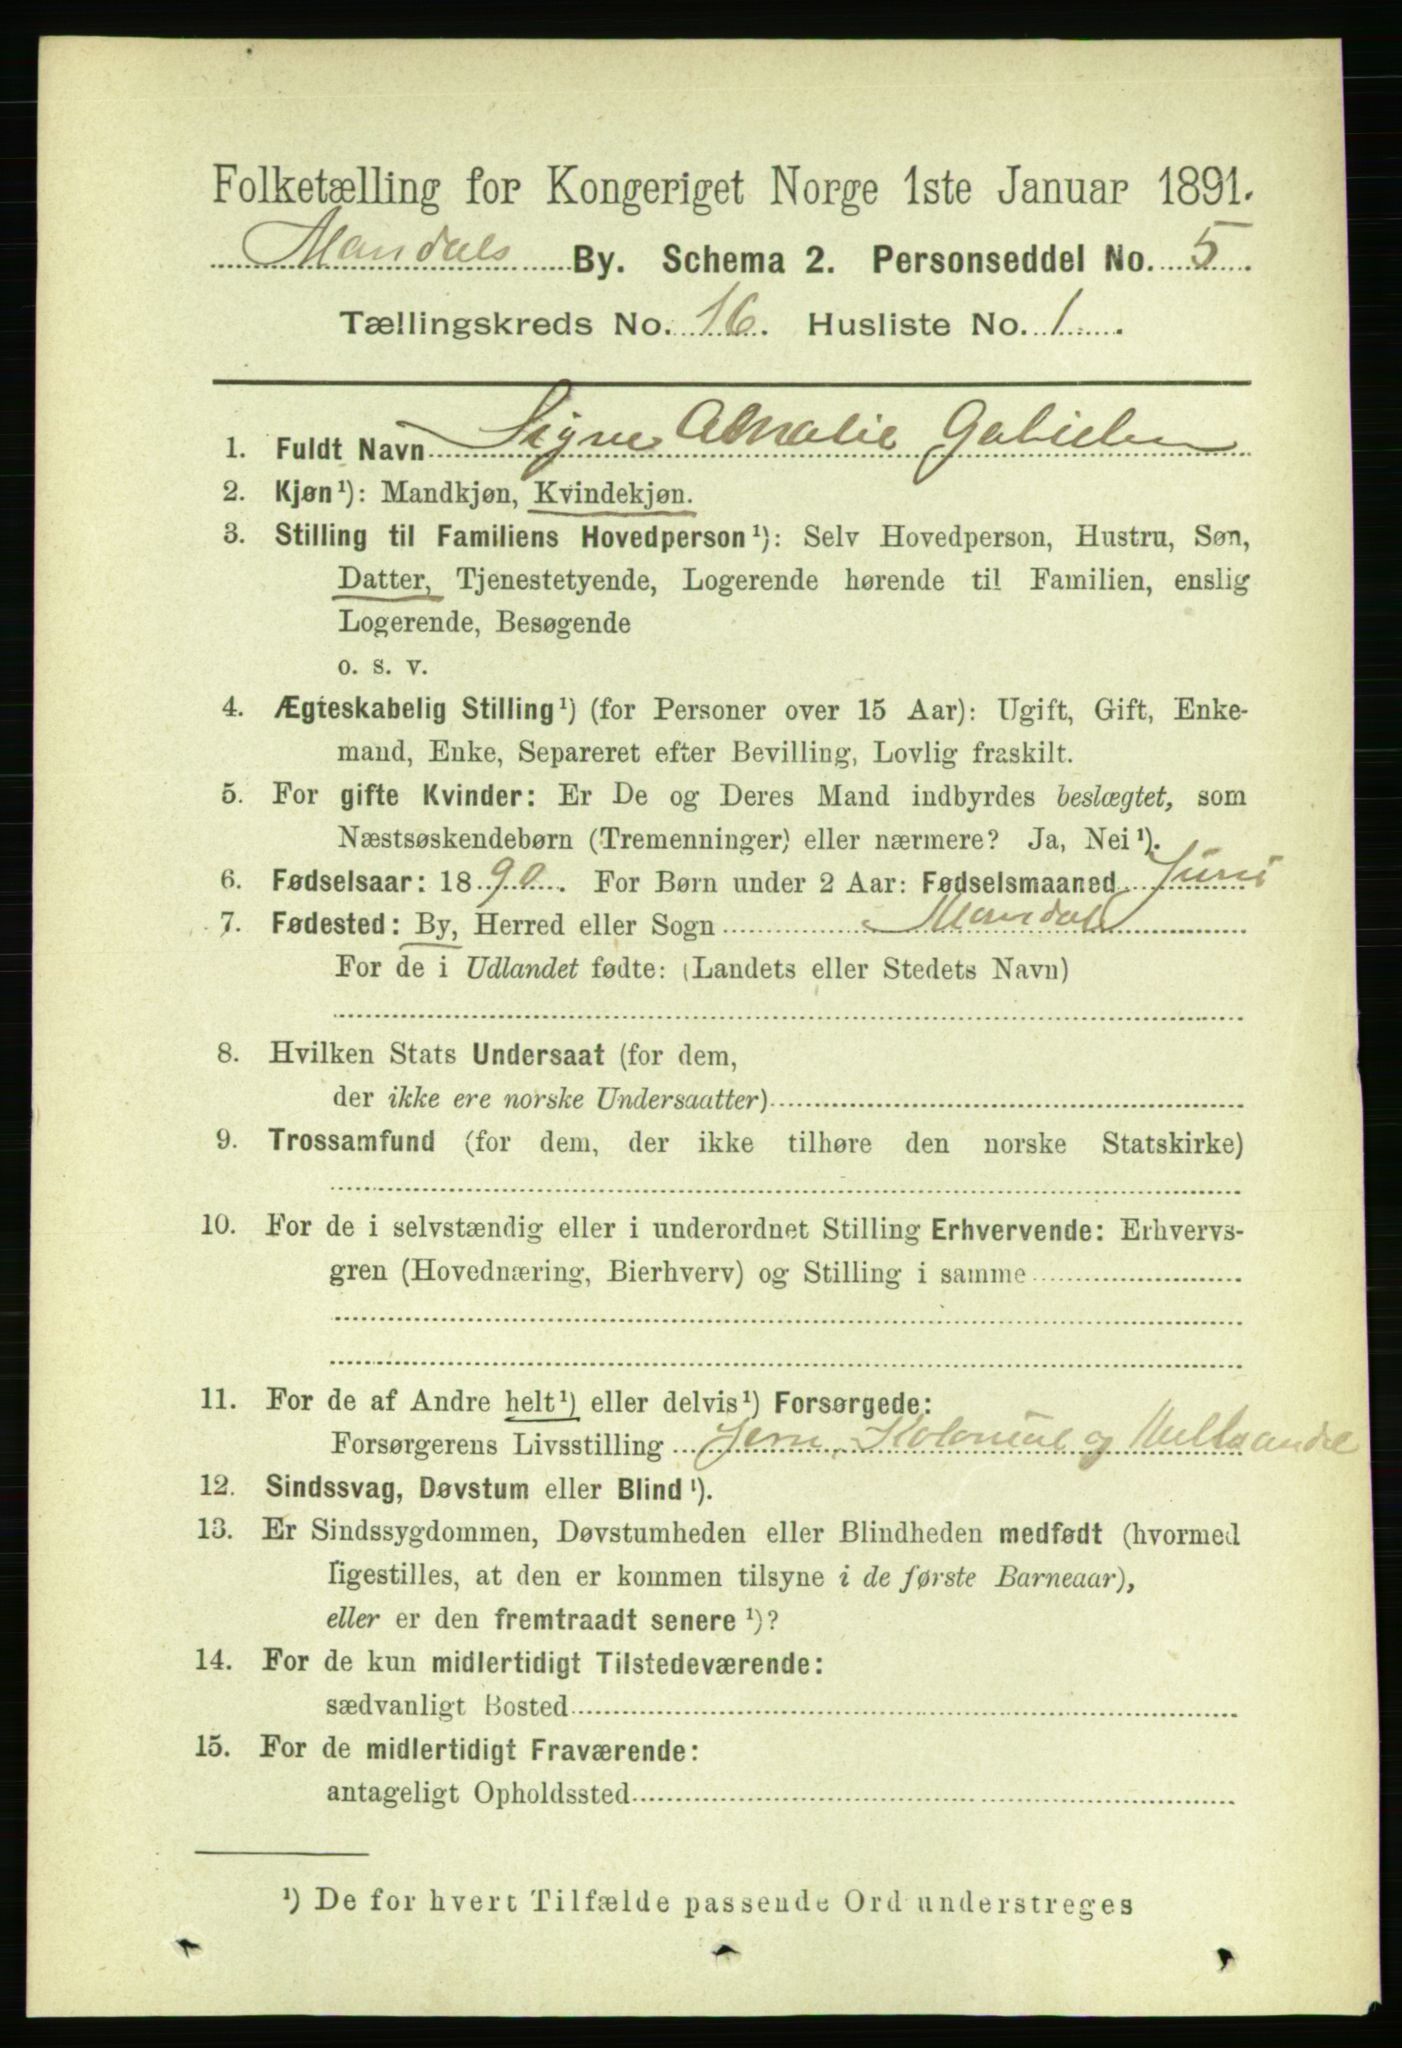 Folketælling for Kongeriget Norge 1ste Januar 1891.
Mandals By. Schema 2. Personseddel No. 5
Tællingskreds No. 16. Husliste No. 1.
1. Fuldt Navn Signe Amalie
2. Kjøn¹): Mandkjøn, Kvindekjøn.
3. Stilling til Familiens Hovedperson¹): Selv Hovedperson, Hustru, Søn,
Datter, Tjenestetyende, Logerende hørende til Familien, enslig
Logerende, Besøgende
o. s. v.
4. Ægteskabelig Stilling¹) (for Personer over 15 Aar): Ugift, Gift, Enke-
mand, Enke, Separeret efter Bevilling, Lovlig fraskilt.
5. For gifte Kvinder: Er De og Deres Mand indbyrdes beslægtet, som
Næstsøskendebørn (Tremenninger) eller nærmere? Ja, Nei¹).
6. Fødselsaar: 1890. For Børn under 2 Aar: Fødselsmaaned Juni
7. Fødested: By, Herred eller Sogn Mandal
For de i Udlandet fødte: (Landets eller Stedets Navn)
8. Hvilken Stats Undersaat (for dem,
der ikke ere norske Undersaatter)
9. Trossamfund (for dem, der ikke tilhøre den norske Statskirke)
10. For de i selvstændig eller i underordnet Stilling Erhvervende: Erhvervs-
gren (Hovednæring, Bierhverv) og Stilling i samme
11. For de af Andre helt¹) eller delvis¹) Forsørgede:
Forsørgerens Livsstilling Jern, Kolonial og
12. Sindssvag, Døvstum eller Blind¹).
13. Er Sindssygdommen, Døvstumheden eller Blindheden medfødt (hvormed
ligestilles, at den er kommen tilsyne i de første Barneaar),
eller er den fremtraadt senere¹)?
14. For de kun midlertidigt Tilstedeværende:
sædvanligt Bosted
15. For de midlertidigt Fraværende:
antageligt Opholdssted
¹) De for hvert Tilfælde passende Ord understreges